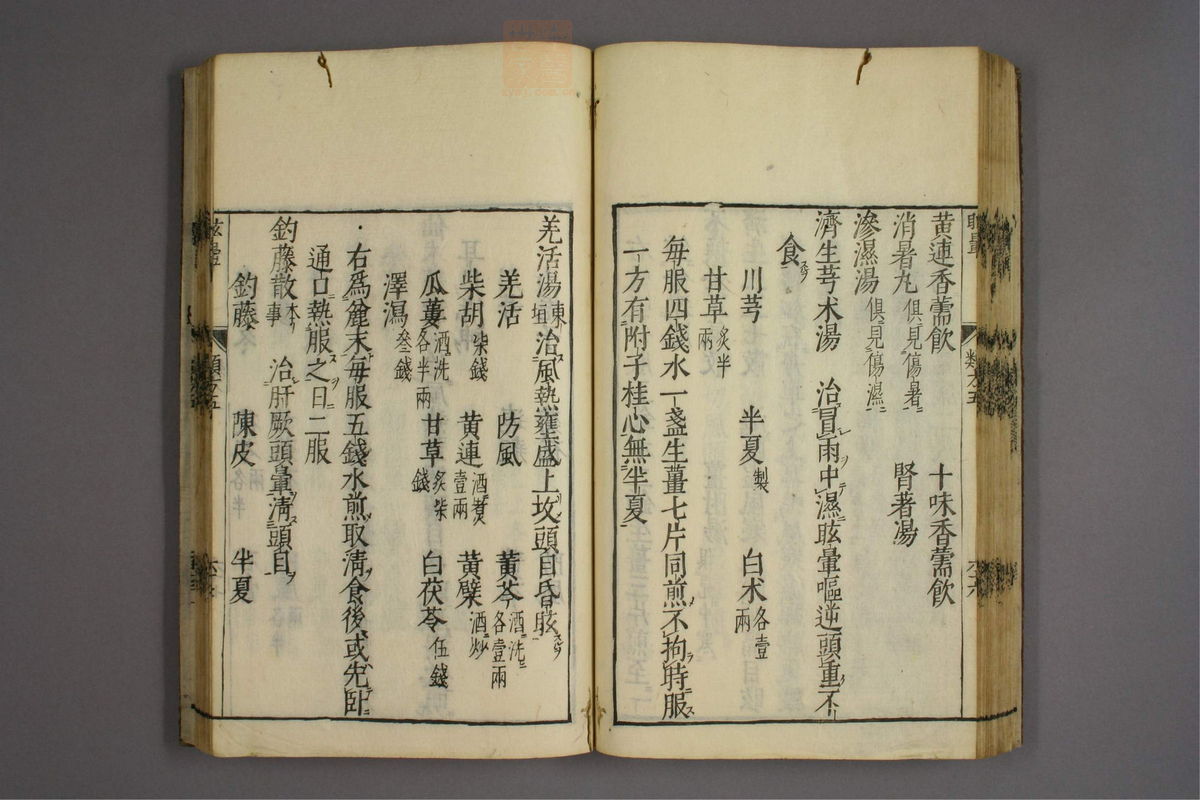 黃連香薷飲　十味香薷飲
消暑丸俱見傷暑　腎著湯
滲濕湯俱見傷濕
濟生芎术湯　治冒雨中濕眩暈嘔逆頭重不
食
川芎　半夏製　白术各壹兩
甘草炙半兩
每服四錢水一盞生薑七片同煎不拘時服
一方有附子桂心無半夏
羌活湯東垣治風熱壅盛上攻頭目昏眩
羌活　防風　黃芩酒洗各壹兩
柴胡柒錢　黃連酒煑壹兩　黃檗酒炒
瓜蔞酒洗各半兩　甘草炙柒錢　白茯苓伍錢
澤瀉叄錢
右爲麄末每服五錢水煎取清食後或先卧
通口熱服之日二服
釣藤散本事　治肝厥頭暈清頭目
釣藤　陳皮　半夏